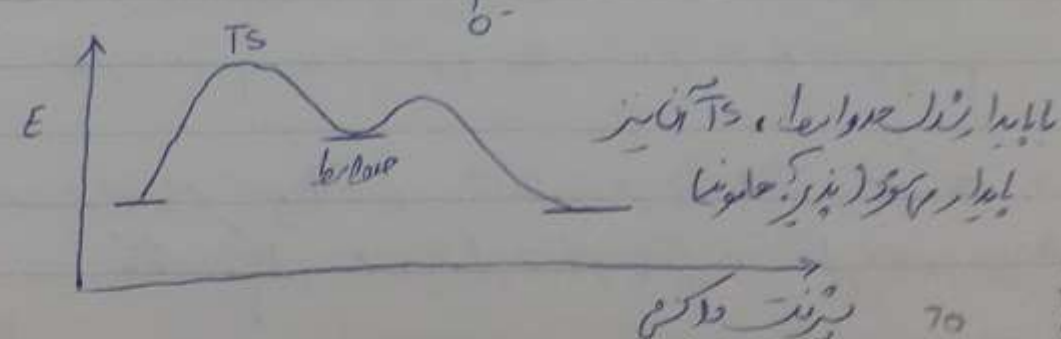 O-
TS
E
با پایدار شدن حدواسط، TS آن نیز
حدواسط
پایدار می‌شود (پذیره هاموند)
پیشرفت واکنش
70